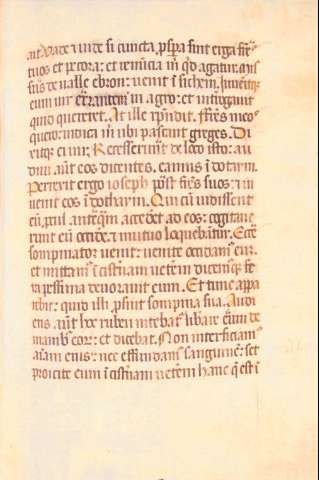 ait vade vide si cuncta pspa sint erga fres
tuos et pecora: et renūcia m qd agatur. mis
sus de valle ebron: venit ī sichem. Invenitqz
eum vir errantem in agro: et interrogavit
quid quereret. At ille rpndit. Fres meos
quero: indica m ubi pascant greges. Di
xitqz ei vir: Recesserunt de loco isto: au
divi aut eos dicentes. eamus ī dotaim.
Perrexit ergo ioseph post fres suos: et in
venit eos ī dothaim. Qui cū vidissent
eū pcul anteqm accedet ad eos: cogitave
runt eū occidē: et mutuo loquebātur. Ecce
somniator venit: venite occidam eum.
et mittam ī cisternam veterem dicemqz fe
ra pessima devoravit eum. Et tunc appa
rebit: quid illi psint sompnia sua. Audi
ens aut hoc ruben nitebat libare eum de
manibs eor: et dicebat. Non interficiams
aīam eius: nec effundam sanguinē: set
proicite eum ī cisternam veterem hanc q est ī